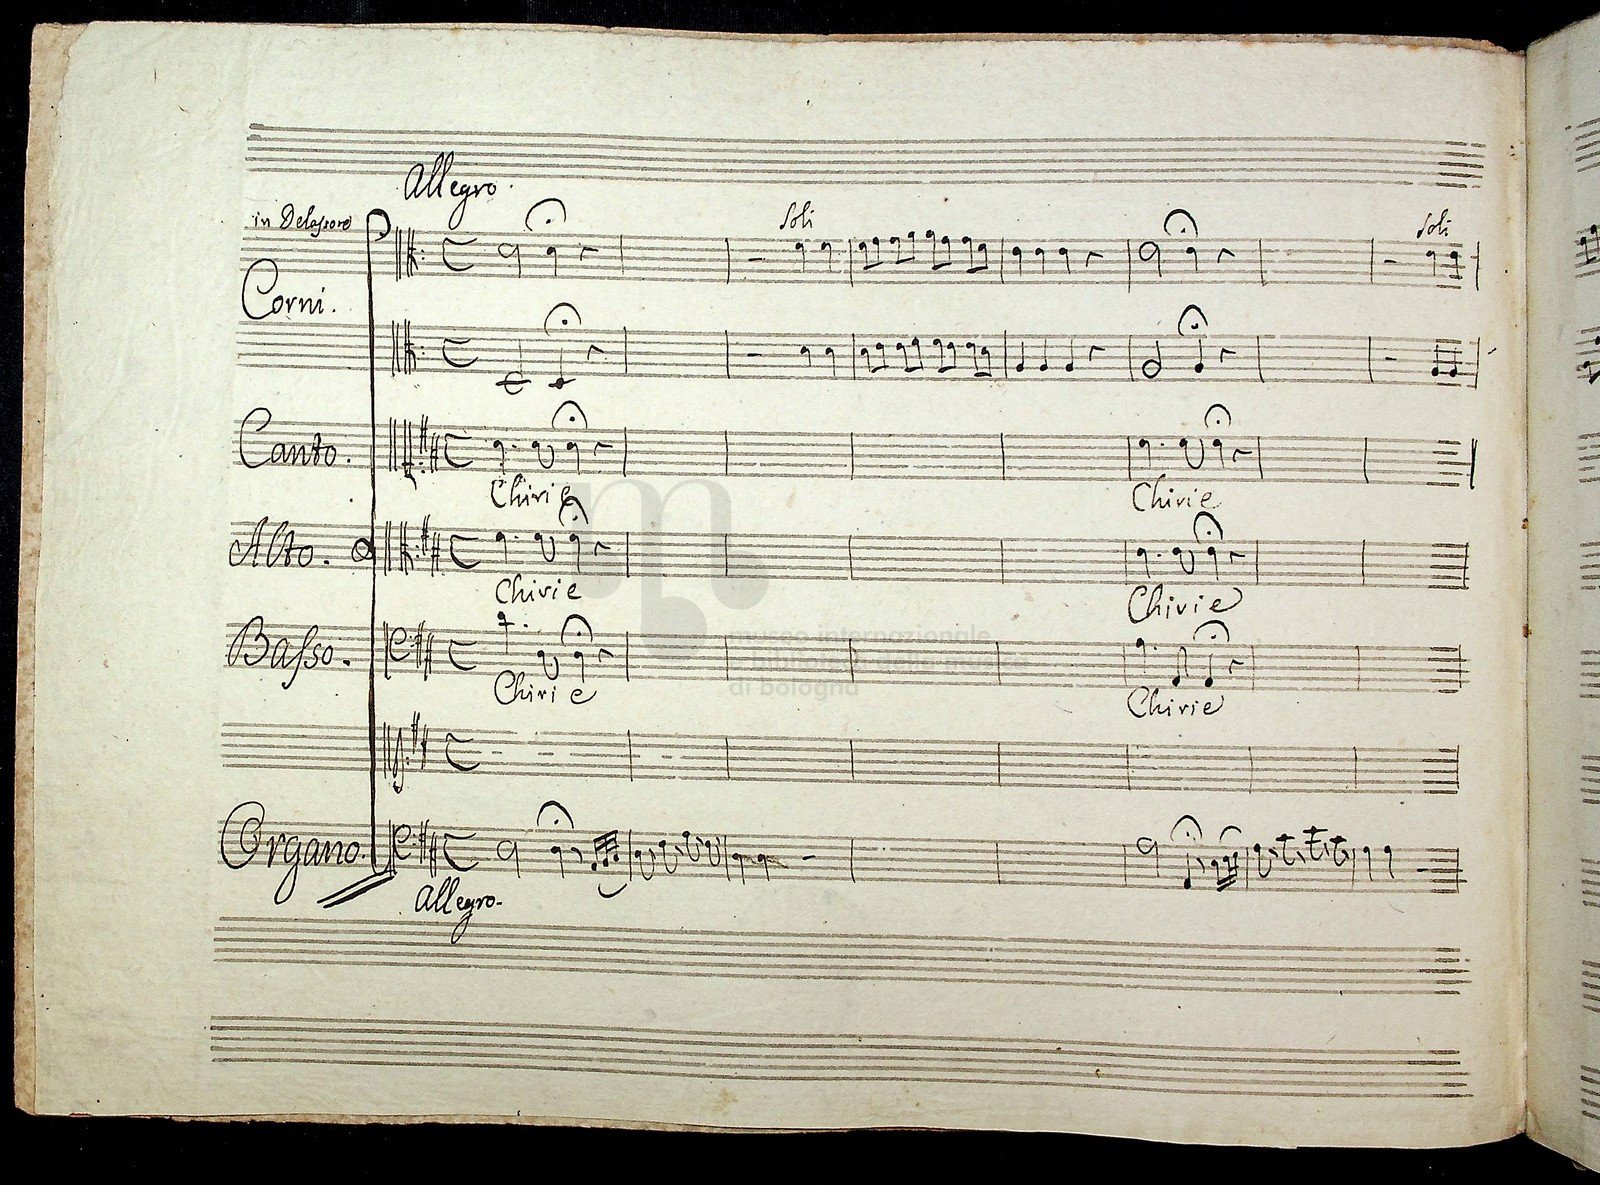 Allegro.
in Delasolre
Soli
Soli
Corni.
Canto.
Chirie
Chirie
Alto.
Chirie
Chirie
Basso.
Chirie
Chirie
museo internazionale
e biblioteca della musica
di bologna
Organo.
Allegro.